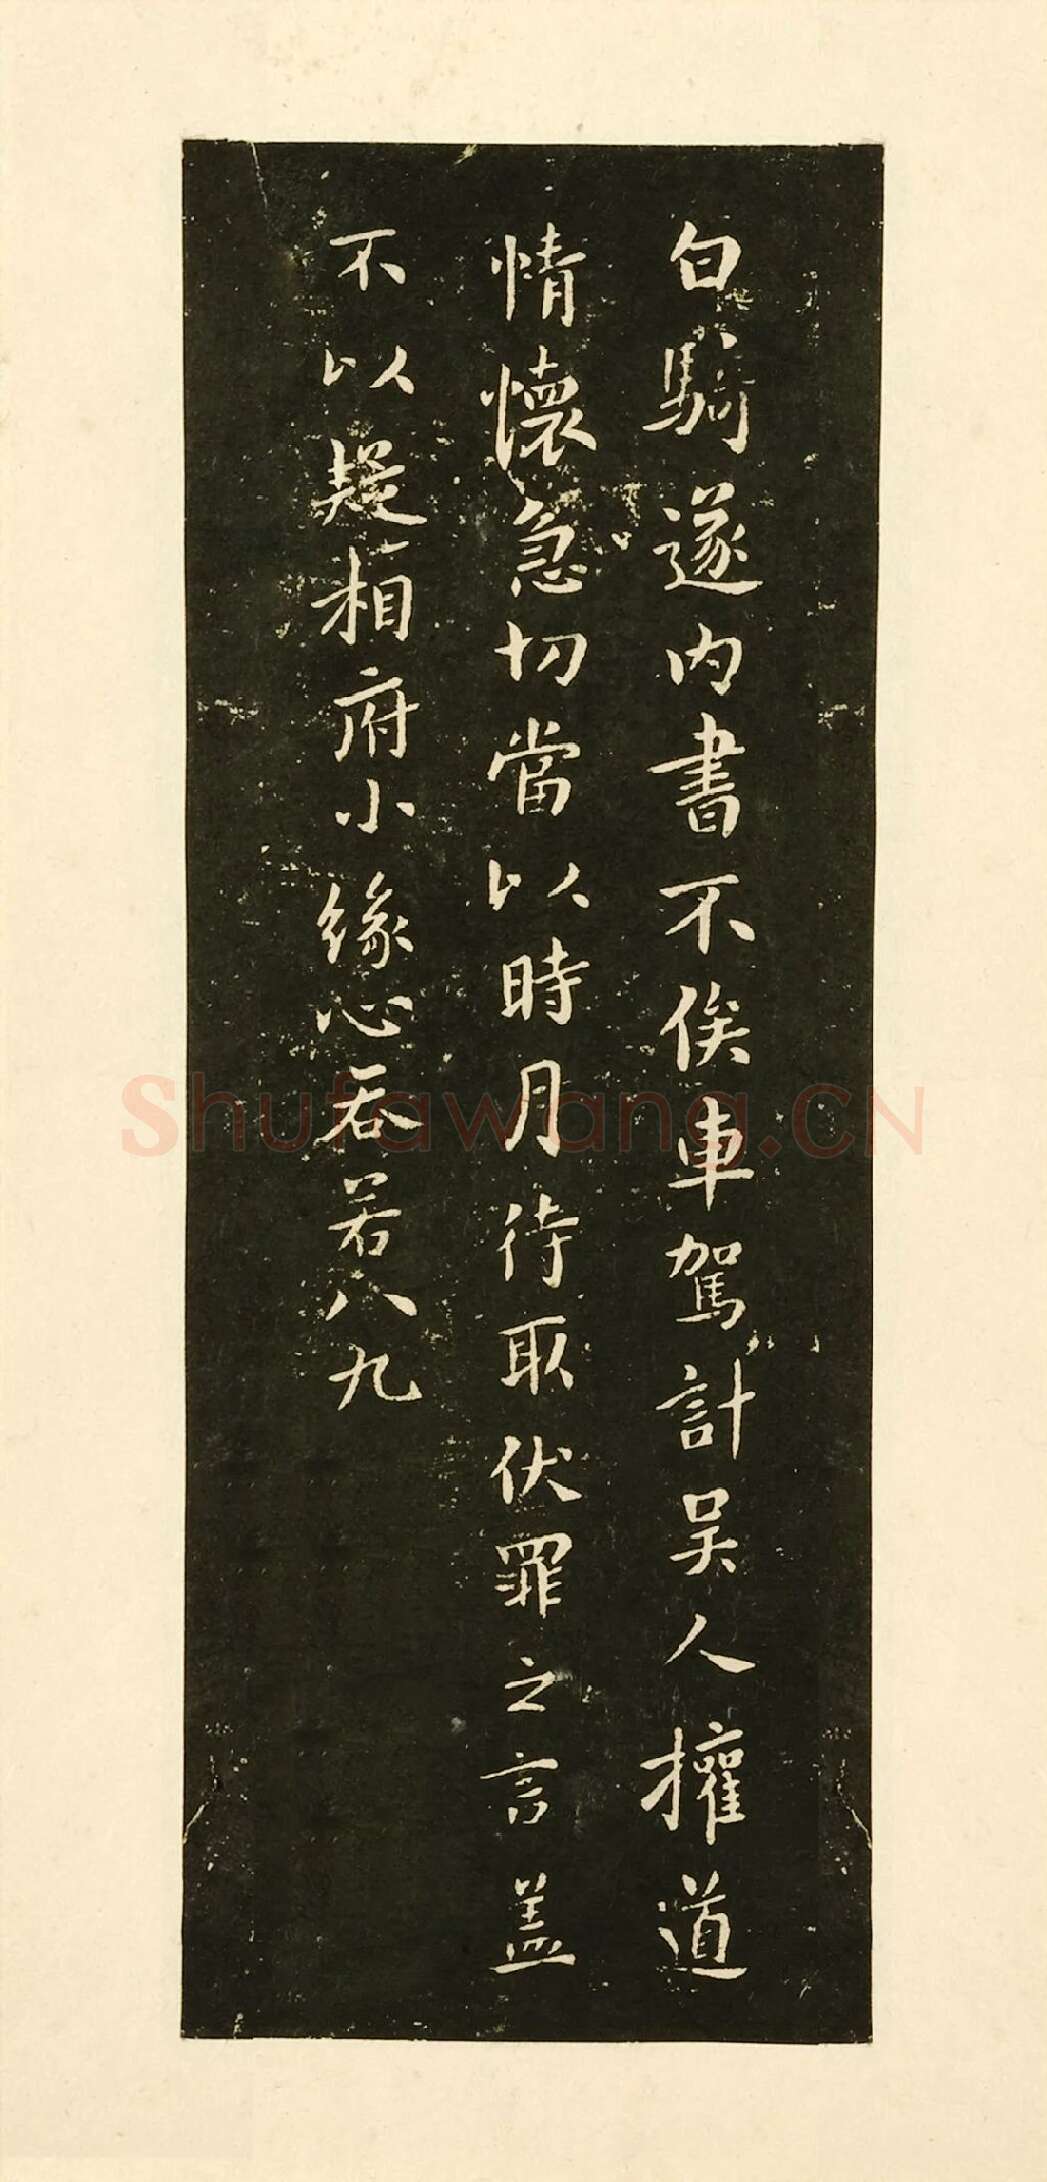 白騎遂内書不俟車駕計吴人權道
情懷急切當以時月待取伏罪之言盖
不以疑相府小緣心吞若八九
Shufawang.CN